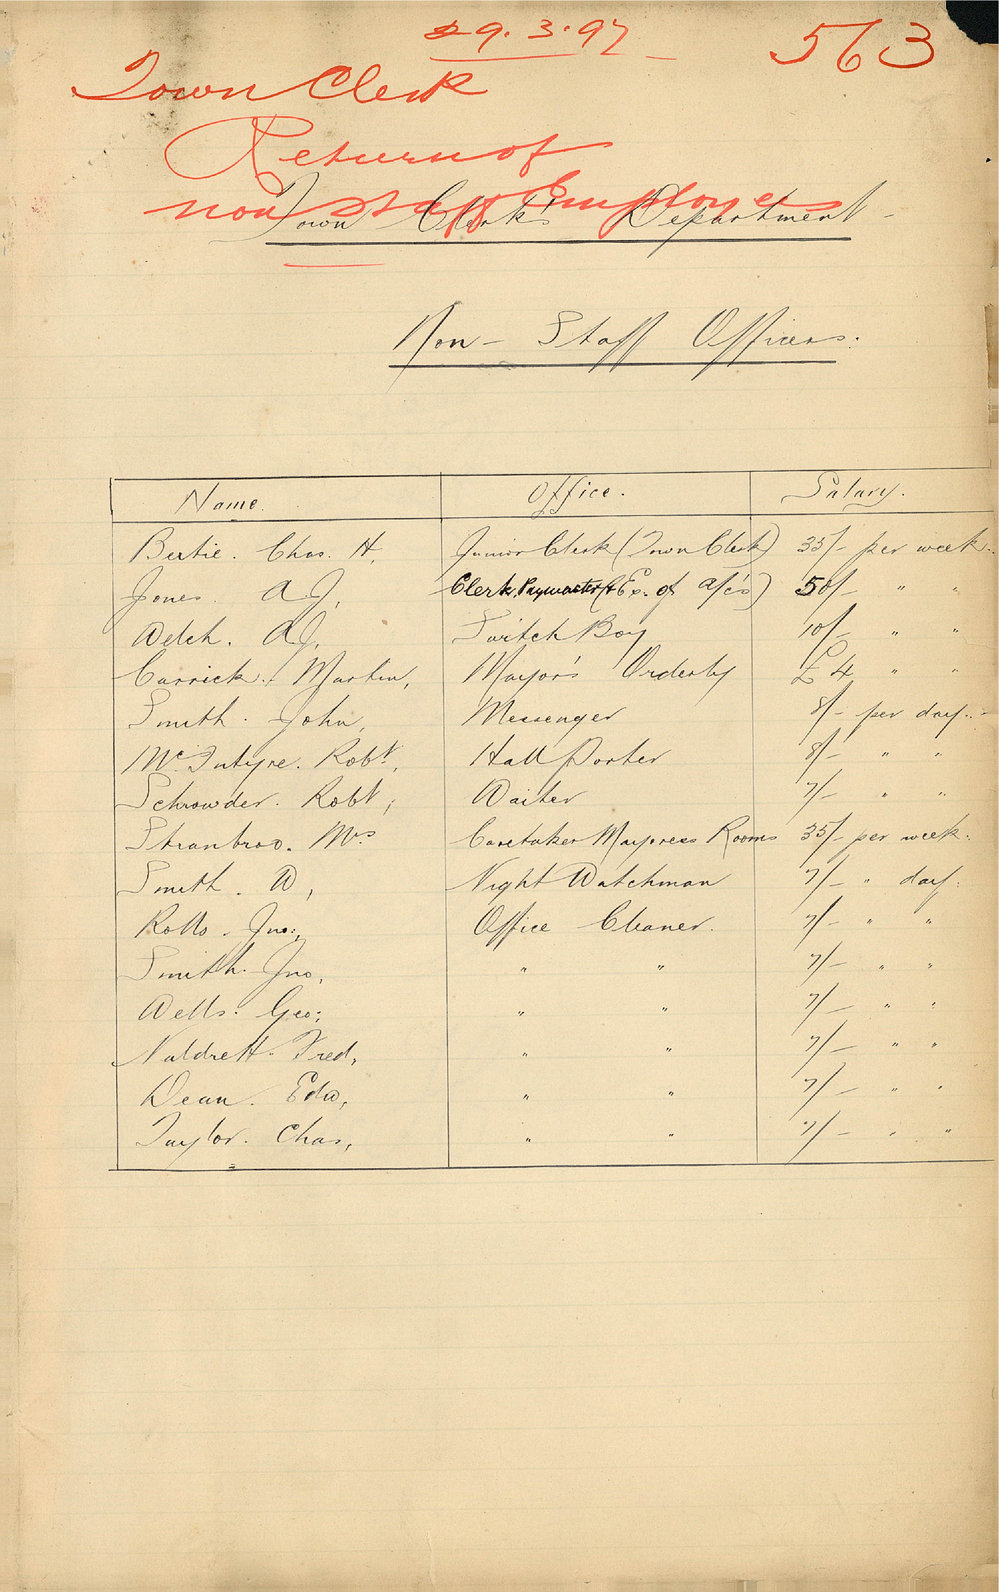 29.3.97
563
Town Clerk
Return of
non staff Employees
Town Clerk's Department
Non-Staff Officers.
Name. Office. Salary.
Bertie. Chas. H. Junior Clerk (Town Clerk) 35/- per week.
Jones. A J. Clerk, Paymaster (& Ex. of a/c's) 50/- " "
Welch. A J. Switch Boy 10/- " "
Carrick. Martin, Mayor's Orderly £4 " "
Smith. John, Messenger 8/- per day.
McIntyre. Robt. Hall Porter 8/- " "
Schrowder. Robt, Waiter 7/- " "
Mrs. Caretaker Mayoress Rooms 35/- per week.
Smith. W, Night Watchman 7/- " day.
Rolls. Jno: Office Cleaner. 7/- " "
Smith. Jno, " " 7/- " "
Wells. Geo: " " 7/- " "
Naldrett. Fred, " " 7/- " "
Dean. Edw, " " 7/- " "
Taylor. Chas, " " 7/- " "